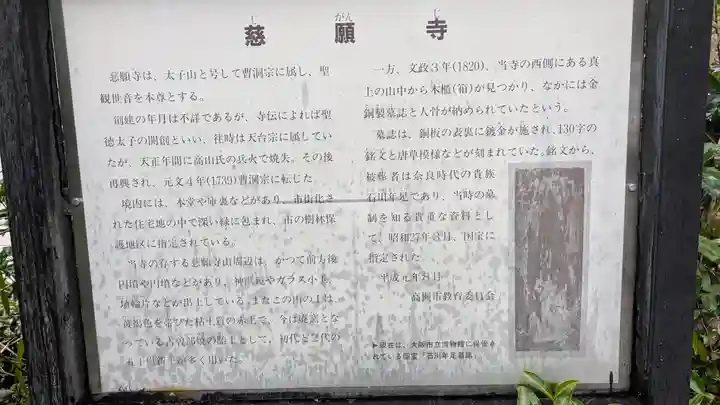 し がん じ
慈願寺
慈願寺は、太子山と号して曹洞宗に属し、聖
観世音を本尊とする。
創建の年月は不詳であるが、寺伝によれば聖
徳太子の開創といい、往時は天台宗に属してい
たが、天正年間に高山氏の兵火で焼失、その後
再興され、元文4年(1739)曹洞宗に転じた。
境内には、本堂や庫裏などがあり、市街化さ
れた住宅地の中で深い緑に包まれ、市の樹林保
護地区に指定されている。
当寺の存する慈願寺山周辺は、かつて前方後
円墳や円墳などがあり、神獣鏡やガラス小玉、
埴輪片などが出土している。またこの山の土は
黄褐色を帯びた粘土質の赤土で、今は廃窯とな
っている古曽部焼の陶土として、初代と二代の
五十嵐新平が多く用いた。
一方、文政3年(1820)、当寺の西側にある真
上の山中から木櫃(箱)が見つかり、なかには金
銅製墓誌と人骨が納められていたという。
墓誌は、銅板の表裏に鍍金が施され、130字の
銘文と唐草模様などが刻まれていた。銘文から、
被葬者は奈良時代の貴族
石川年足であり、当時の墓
制を知る貴重な資料とし
て、昭和27年3月、国宝に
指定された。
平成元年3月
高槻市教育委員会
▶現在は、大阪市立博物館に保管さ
れている国宝「石川年足墓誌」